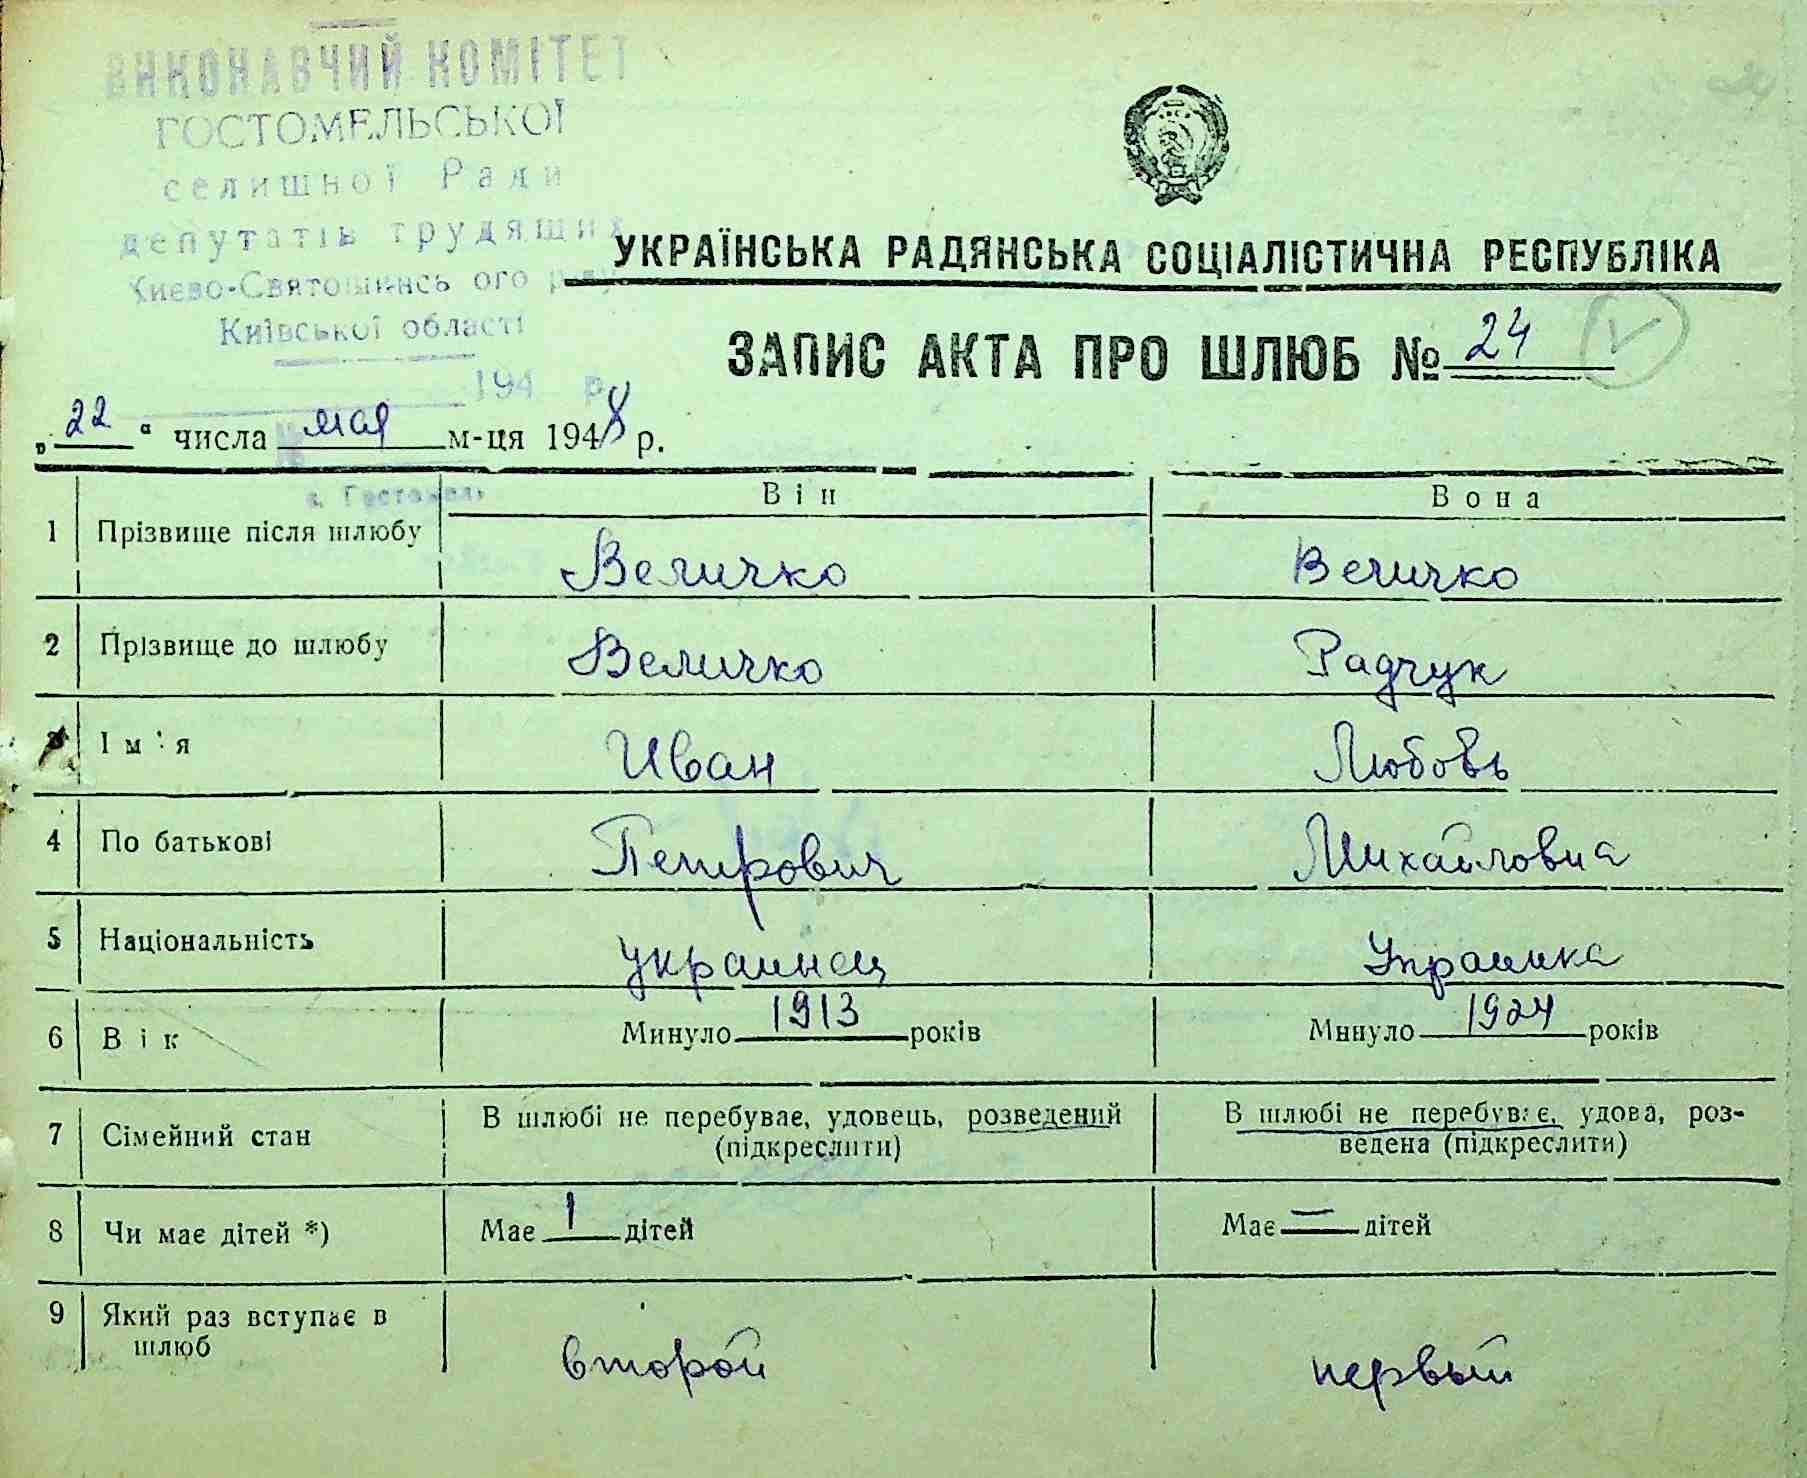 ВИКОНАВЧИЙ КОМІТЕТ
ГОСТОМЕЛЬСЬКОЇ
селишної Ради
депутатів трудящих
Києво-Святошинсь ого р-ну
Київської області
194 р.
м. Гостомель
УКРАЇНСЬКА РАДЯНСЬКА СОЦІАЛІСТИЧНА РЕСПУБЛІКА
ЗАПИС АКТА ПРО ШЛЮБ № 24
„22“ числа мая м-ця 1948 р.
Він Вона
1 Прізвище після шлюбу Величко Величко
2 Прізвище до шлюбу Величко Радчук
3 Ім'я Иван Любовь
4 По батькові Петрович Михайловна
5 Національність украинец Украинка
6 Вік Минуло 1913 років Минуло 1924 років
7 Сімейний стан В шлюбі не перебуває, удовець, розведений (підкреслити) В шлюбі не перебуває, удова, роз-
ведена (підкреслити)
8 Чи має дітей *) Має 1 дітей Має — дітей
9 Який раз вступає в
шлюб второй первый